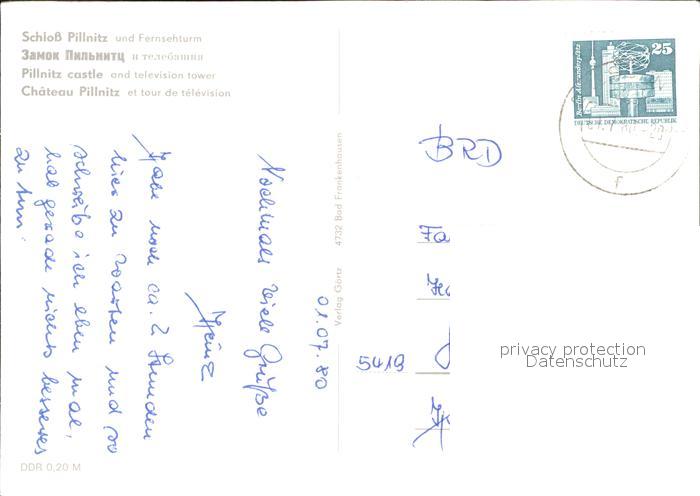 Schloß Pillnitz und Fernsehturm
Замок Пильнитц и телебашня
Pillnitz castle and television tower
Château Pillnitz et tour de télévision
25
Berlin-Alexanderplatz
DEUTSCHE DEMOKRATISCHE REPUBLIK
BRD
Fa
5419
privacy protection
Datenschutz
Verlag Görtz 4732 Bad Frankenhausen
01.07.80
Nochmals viele Grüße
Heinz
Habe noch ca. 2 Stunden
hier zu warten und so
schreibe ich eben mal,
hab gerade nichts besseres
zu tun.
DDR 0,20 M